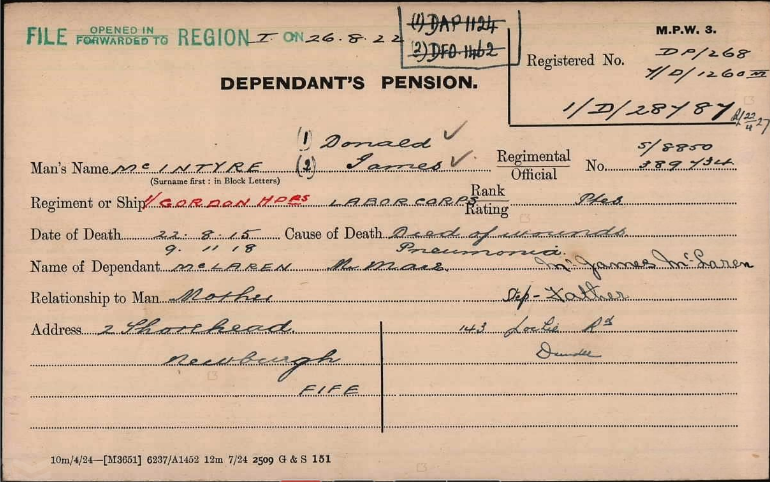 FILE OPENED IN FORWARDED TO REGION I. ON 26.8.22
(1) DAP 1124
(2) DFO.1462
M.P.W. 3.
Registered No. DP/268
Y/D/1260
1/D/28787
22/4/27
DEPENDANT'S PENSION.
(1) Donald ✓
Man's Name McINTYRE (2) James ✓ Regimental/Official No. S/8850
389734
(Surname first: in Block Letters)
Regiment or Ship 1/GORDON HDRS LABOR CORPS Rank/Rating Ptes
Date of Death 22.8.15 Cause of Death Died of wounds
9.11.18 Pneumonia
Name of Dependant McLAREN M Mary Mr James McLaren
Relationship to Man Mother Step-Father
Address 2 Shorehead 143 Lochee Rd
Newburgh Dundee
FIFE
10m/4/24—[M3651] 6237/A1452 12m 7/24 2509 G & S 151